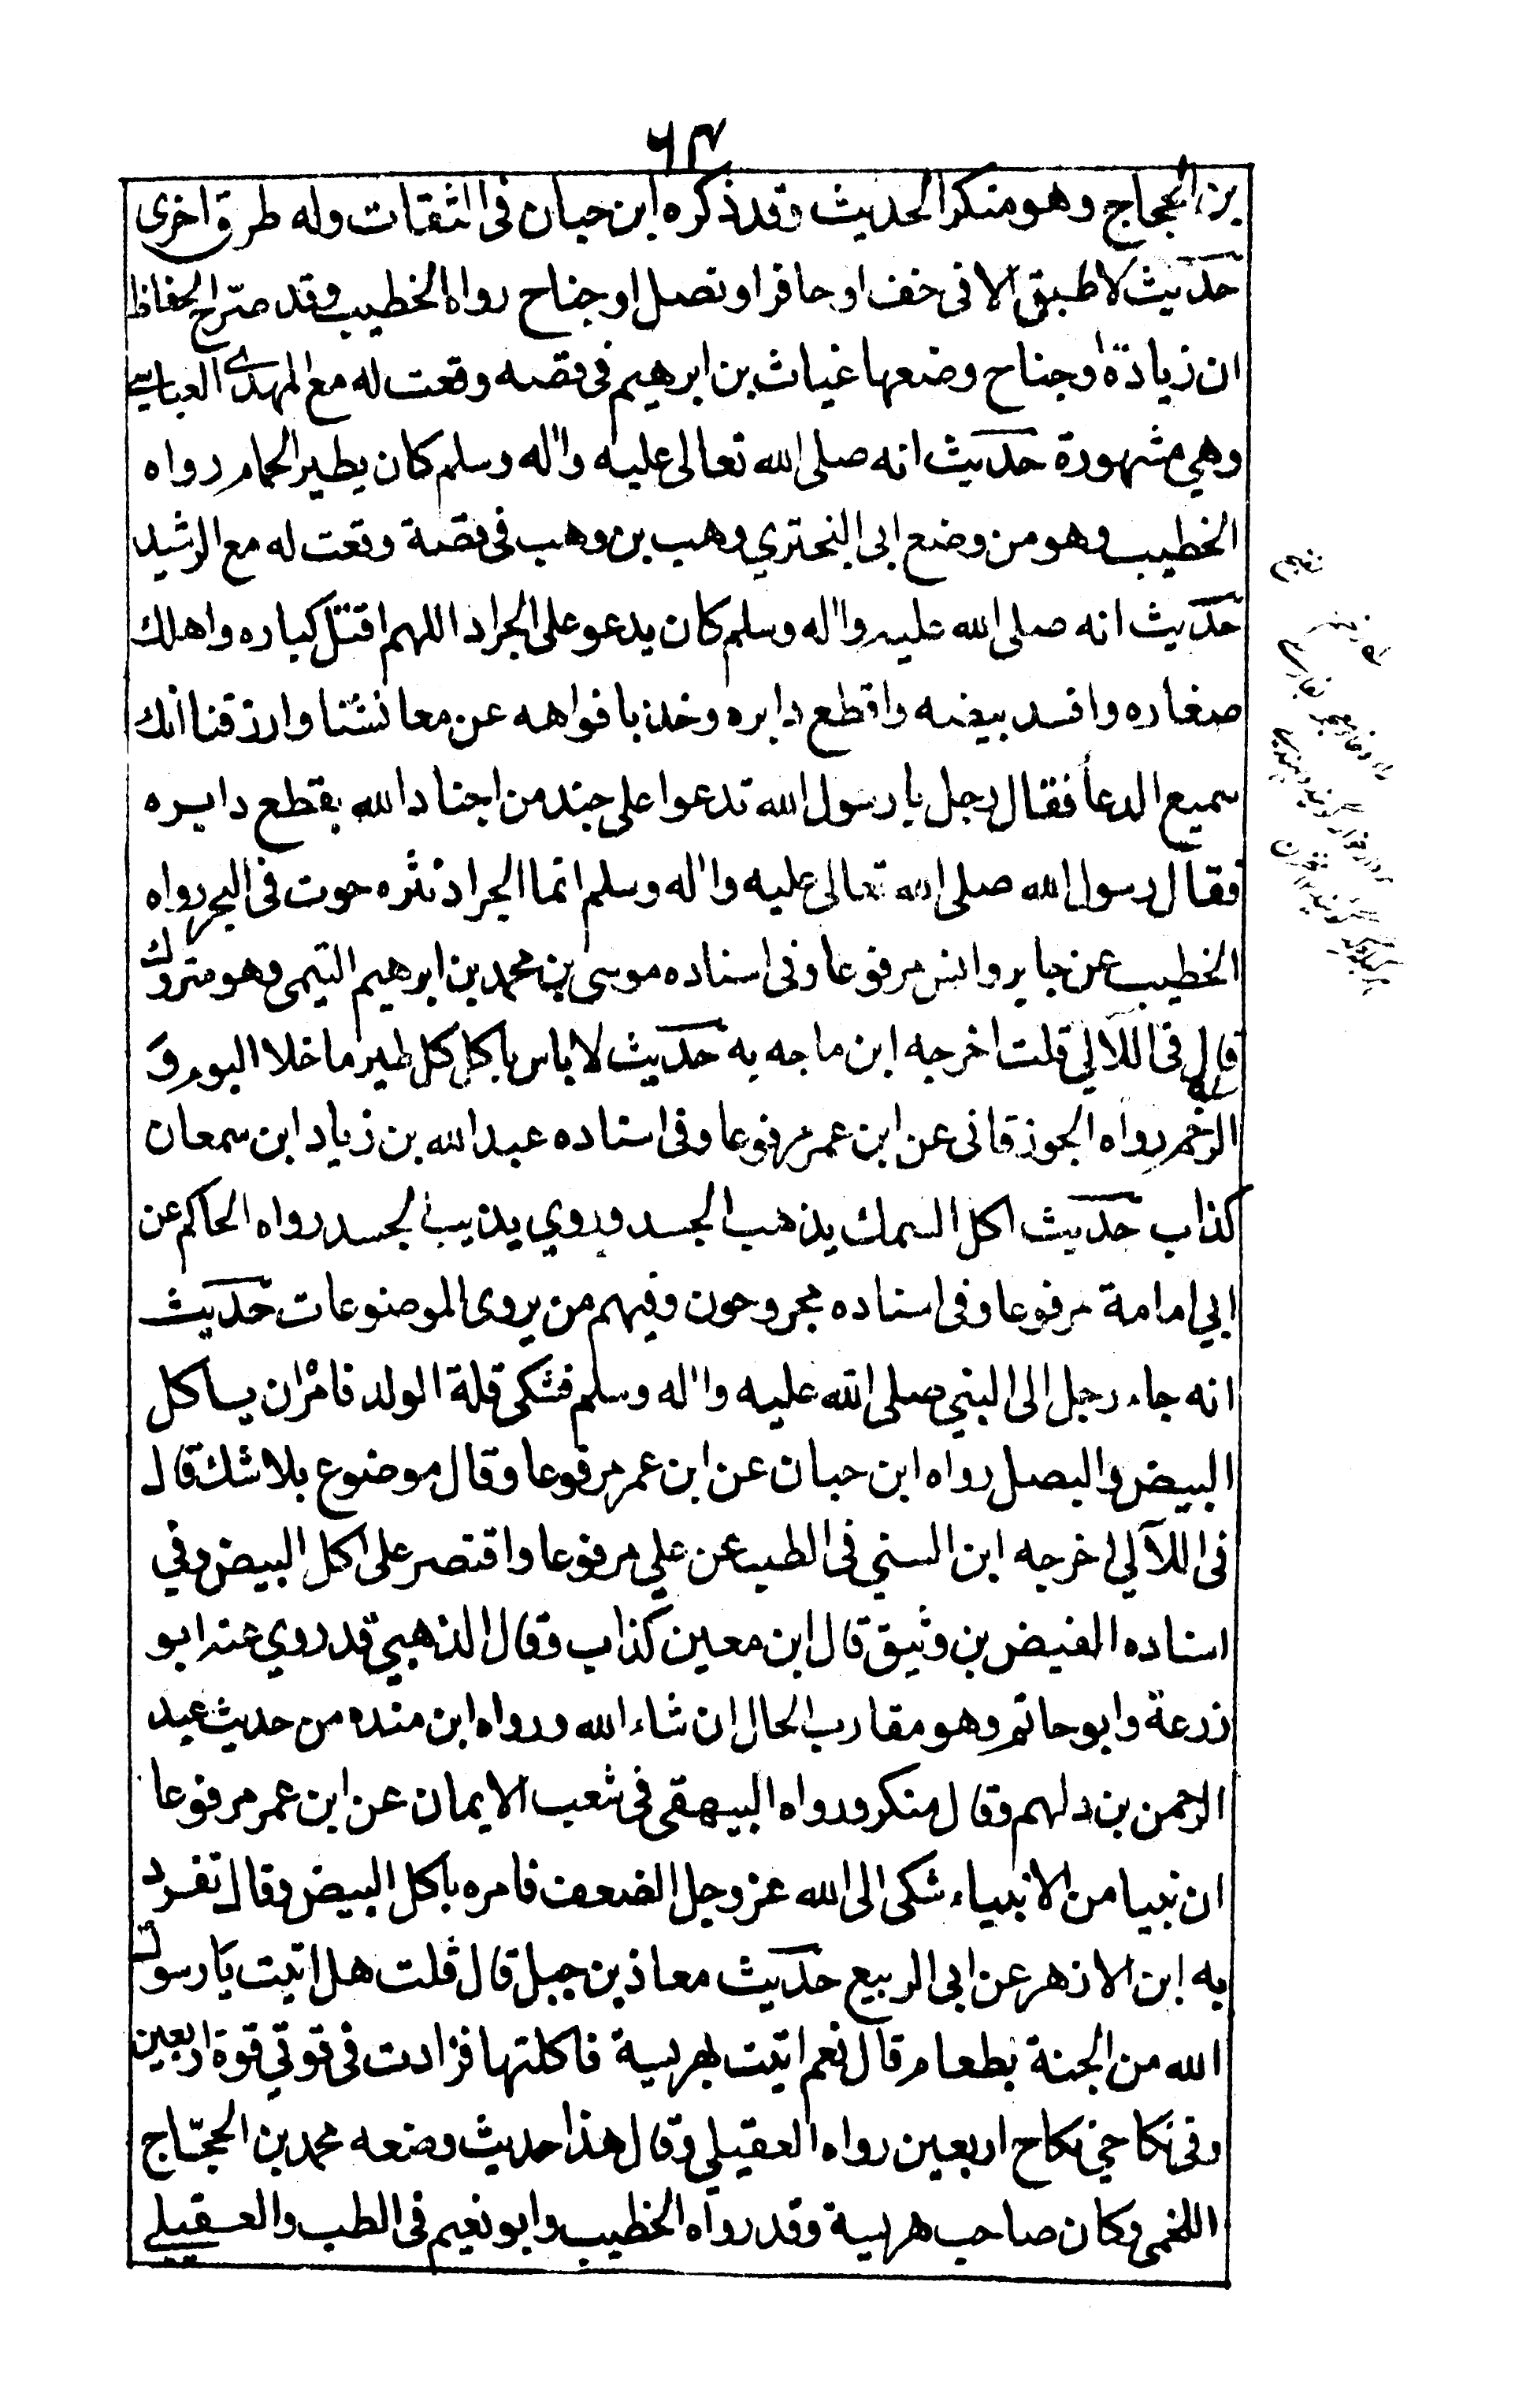 ٦٣
بن الحجاج وهو منكر الحديث وقد ذكره ابن حبان فى الثقات وله طرق اخرى
حديث لا طبق الا فى خف او حافر او نصل او جناح رواه الخطيب وقد صرّح الحفاظ
ان زيادة او جناح وضعها غياث بن ابرهيم فى قصه وقعت له مع المهدى العباسى
وهي مشهورة حديث انه صلى الله تعالى عليه واله وسلم كان يطير الحمام رواه
الخطيب وهو من وضع ابى البختري وهب بن وهب فى قصة وقعت له مع الرشيد
حديث انه صلى الله عليه واله وسلم كان يدعو على الجراد اللهم اقتل كباره واهلك
صغاره وافسد بيضه واقطع دابره وخذ بافواهه عن معائشنا وارزقنا انك
سميع الدعا فقال رجل يا رسول الله تدعوا على جند من اجناد الله بقطع دابره
فقال رسول الله صلى الله تعالى عليه واله وسلم انما الجراد نثره حوت فى البحر رواه
الخطيب عن جابر وانس مرفوعا وفى اسناده موسى بن محمد بن ابرهيم التيمى وهو متروك
قال فى اللآلي قلت اخرجه ابن ماجه به حديث لا باس باكل كل طير ما خلا البوم و
الرخم رواه الجوزقانى عن ابن عمر مرفوعا وفى اسناده عبد الله بن زياد ابن سمعان
كذاب حديث اكل السمك يذهب الجسد وروي يذيب الجسد رواه الحاكم عن
ابي امامة مرفوعا وفى اسناده مجروحون وفيهم من يروى الموضوعات حديث
انه جاء رجل الى النبي صلى الله عليه واله وسلم فشكى قلة الولد فامر ان ياكل
البيض والبصل رواه ابن حبان عن ابن عمر مرفوعا وقال موضوع بلا شك قال
فى اللآلي اخرجه ابن السني فى الطب عن علي مرفوعا واقتصر على اكل البيض وفي
اسناده الفيض بن وثيق قال ابن معين كذاب وقال الذهبي قد روي عنه ابو
زرعة وابو حاتم وهو مقارب الحال ان شاء الله ورواه ابن منده من حديث عبد
الرحمن بن دلهم وقال منكر ورواه البيهقى فى شعب الايمان عن ابن عمر مرفوعا
ان نبيا من الانبياء شكى الى الله عز وجل الضعف فامره باكل البيض وقال تفرد
به ابن الازهر عن ابى الربيع حديث معاذ بن جبل قال قلت هل اتيت يا رسول
الله من الجنة بطعام قال نعم اتيت بهريسة فاكلتها فزادت فى قوتي قوة اربعين
وفى نكاحي نكاح اربعين رواه العقيلي وقال هذا حديث وضعه محمد بن الحجّاج
اللخمى وكان صاحب هريسة وقد رواه الخطيب وابو نعيم فى الطب والعقيلي